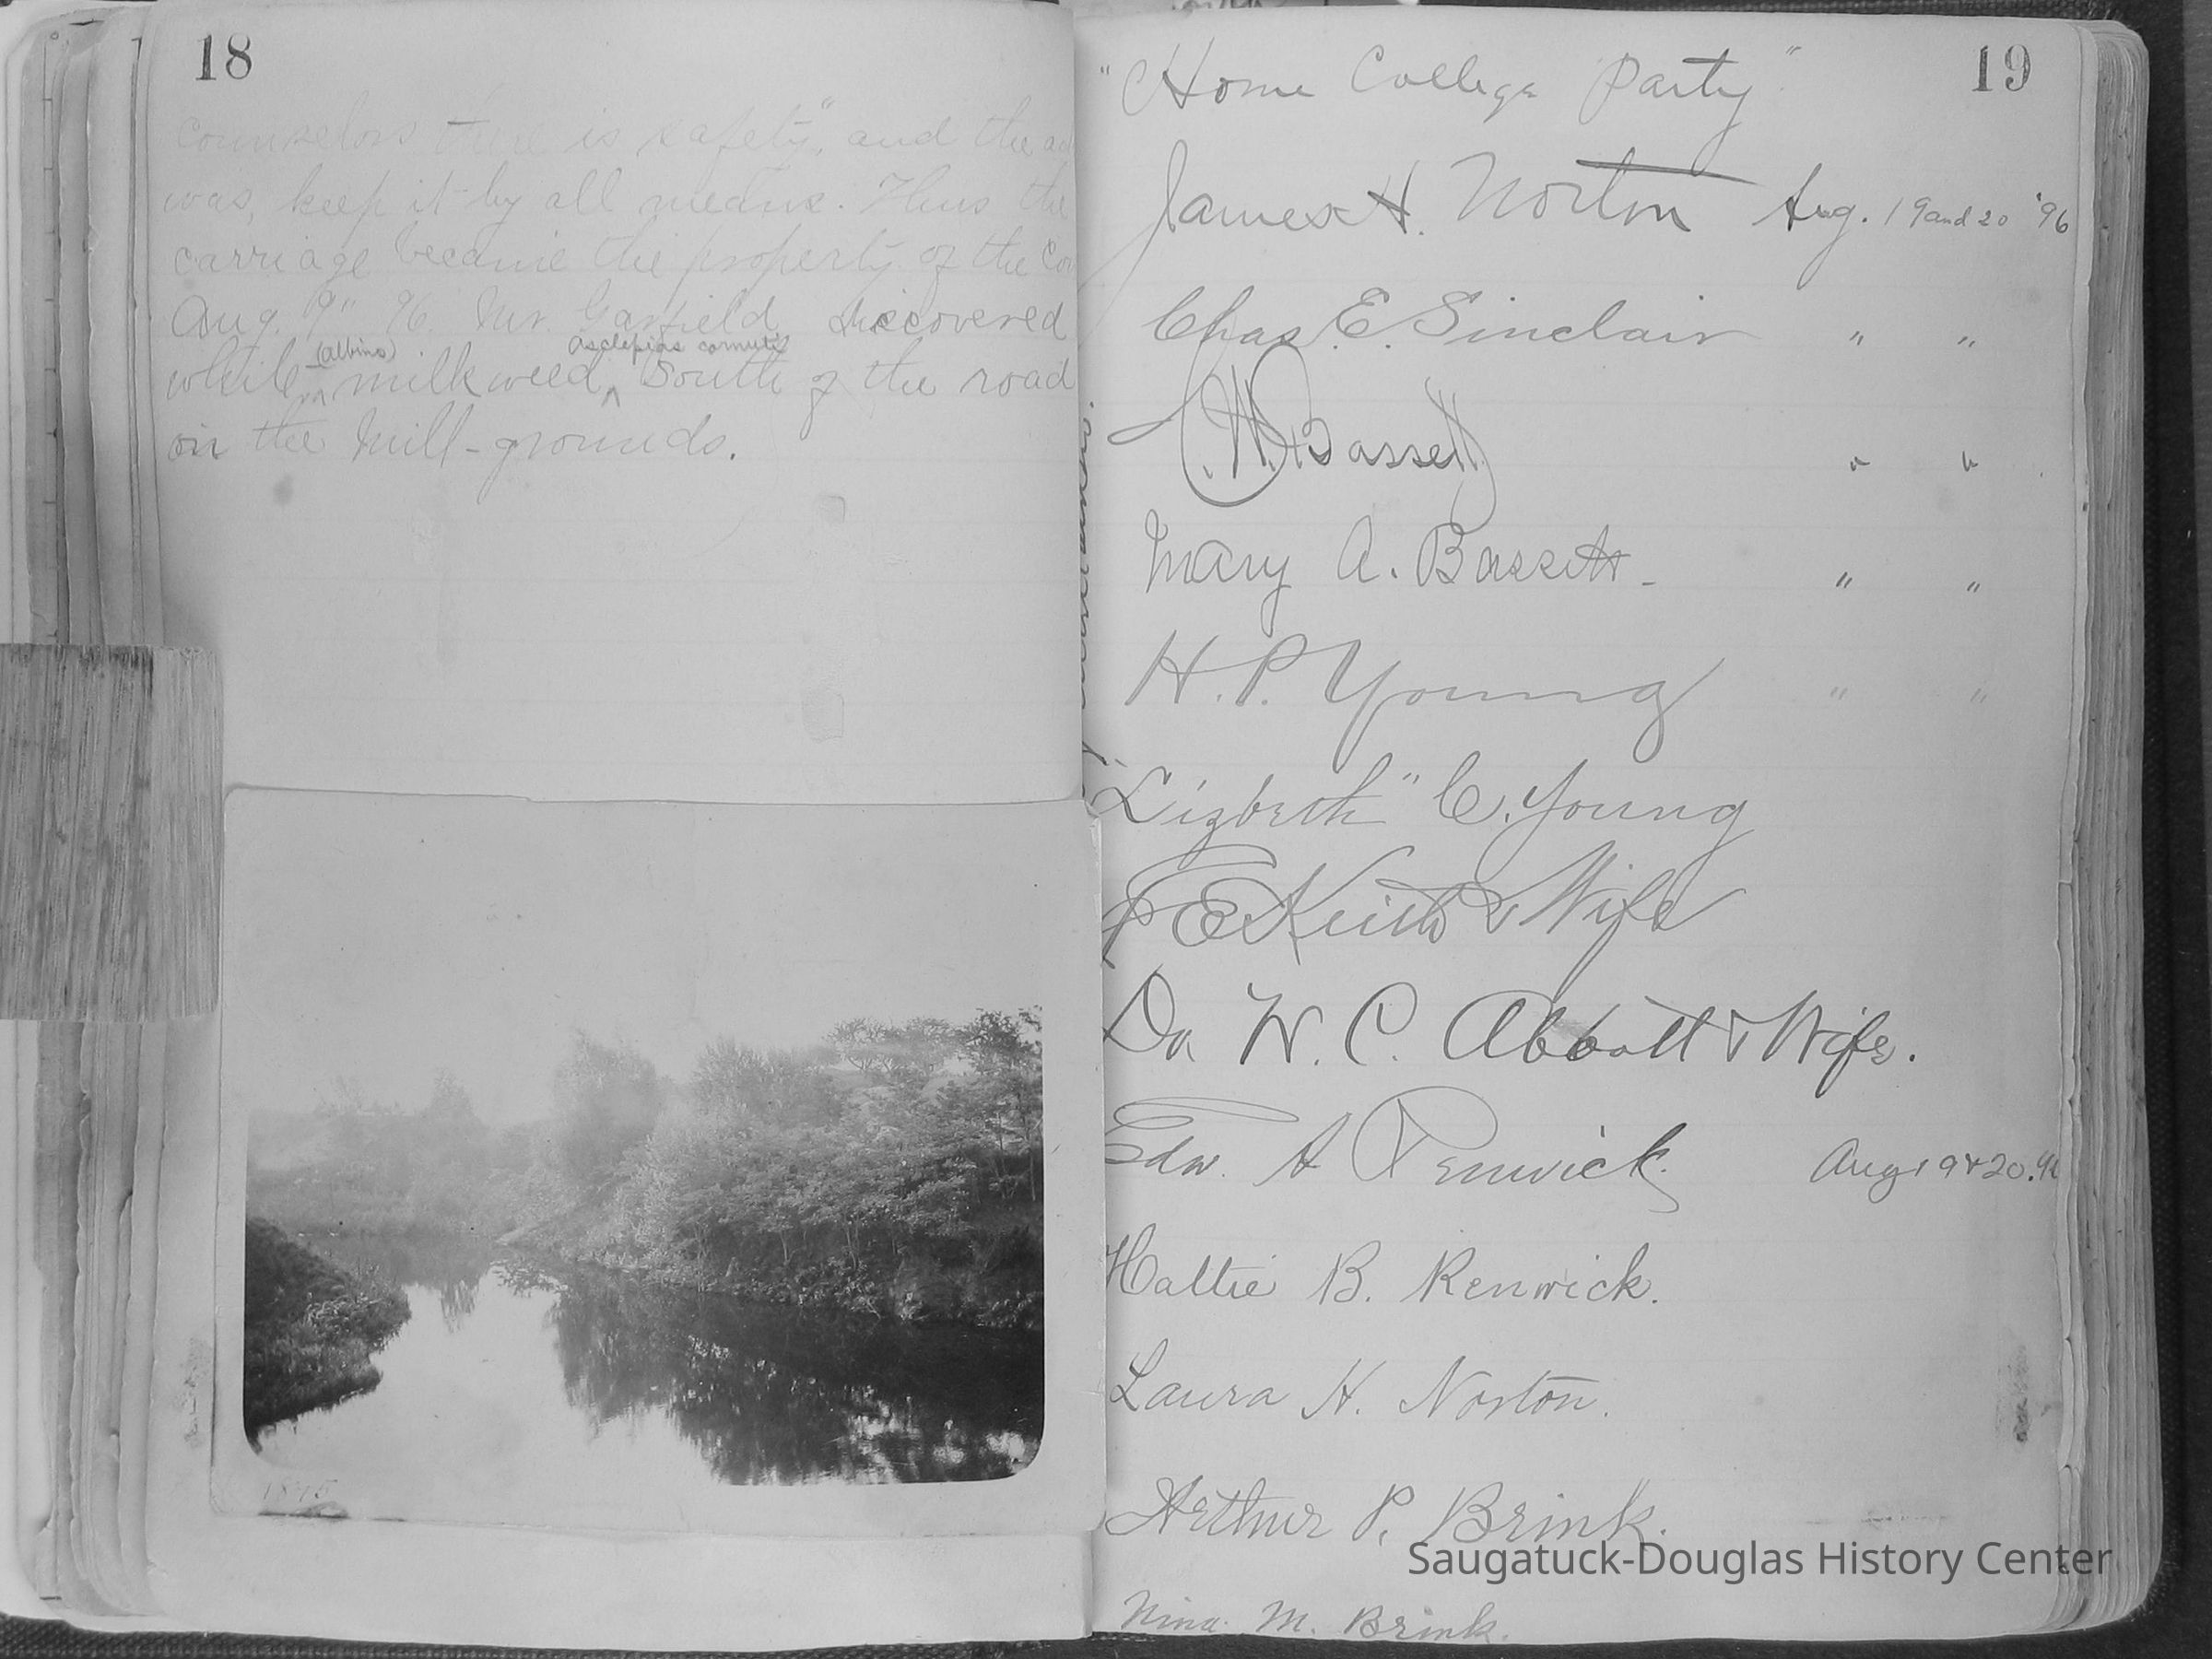 18
counselors there is safety", and the
was, keep it by all means. Thus the
carriage became the property of the
Aug. 9" 96. Mr. Garfield discovered
(albino) asclepias cornuti
white milkweed, South of the road
on the Mill-grounds.
1895
19
"Home College Party"
James H. Norton Aug. 19 and 20 '96
Chas. E. Sinclair " "
Bassett " "
Mary A. Bassett - " "
H. P. Young " "
"Lizbeth" C. Young
Keith & Wife
Dr W. C. Abbott & Wife.
Edw. A Renwick. Aug 19 & 20.96
Hattie B. Renwick.
Laura H. Norton.
Arthur P. Brink.
Nina M. Brink.
Saugatuck-Douglas History Center